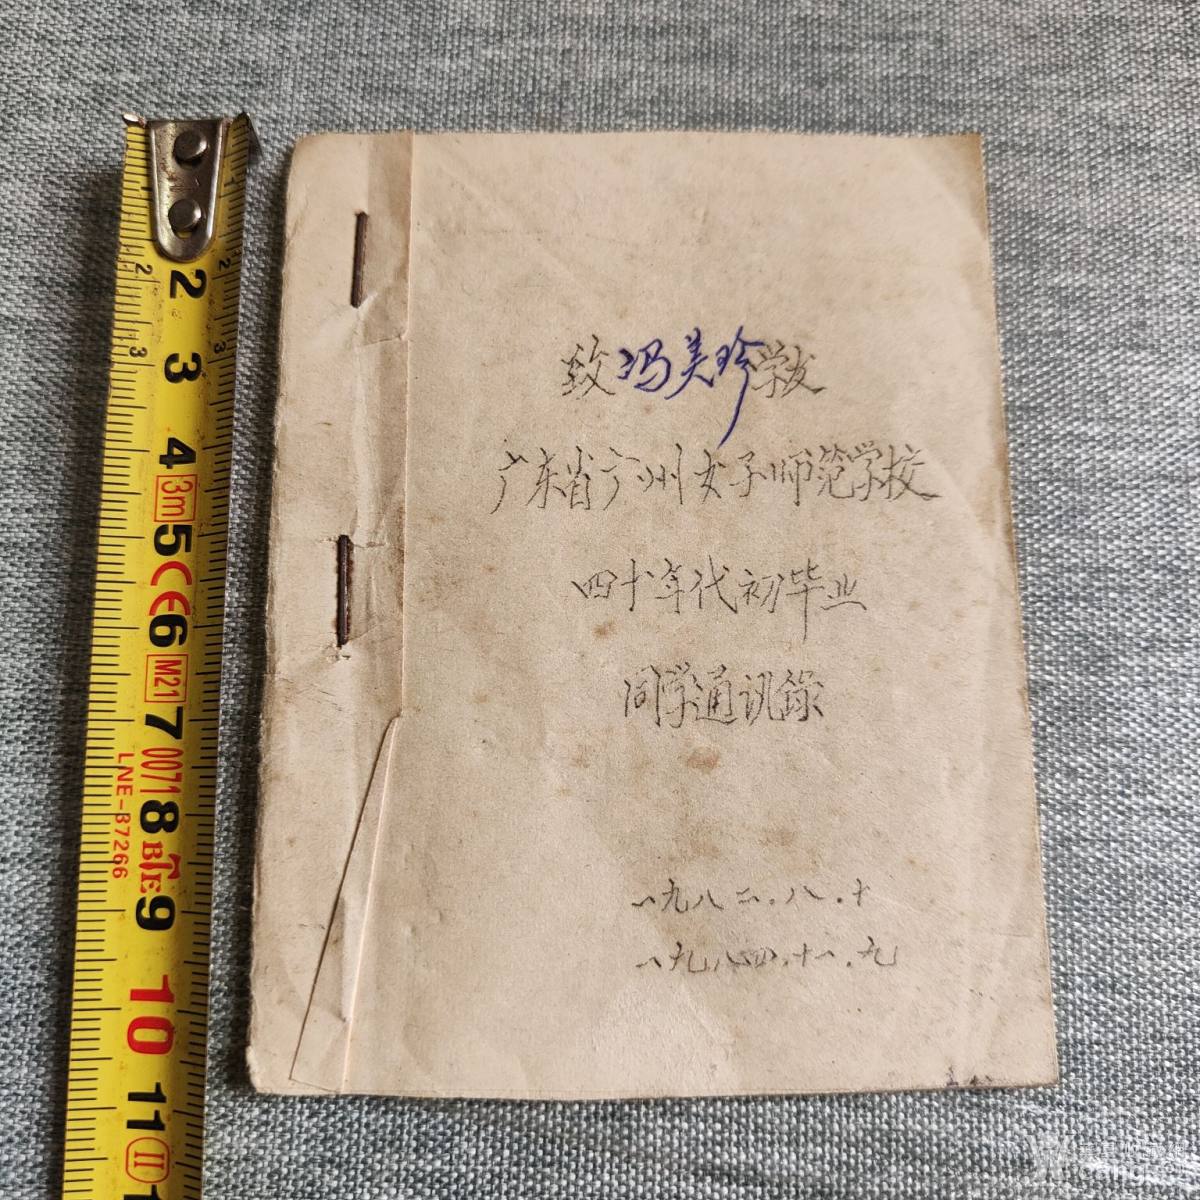 致冯美珍学友
广东省广州女子师范学校
四十年代初毕业
同学通讯錄
一九八二.八.十
一九八四.十一.九
2
3
2
3
2
3
4
3m
5
CE
6
M21
7
0071
LNE-87266
8
9
10
11
II